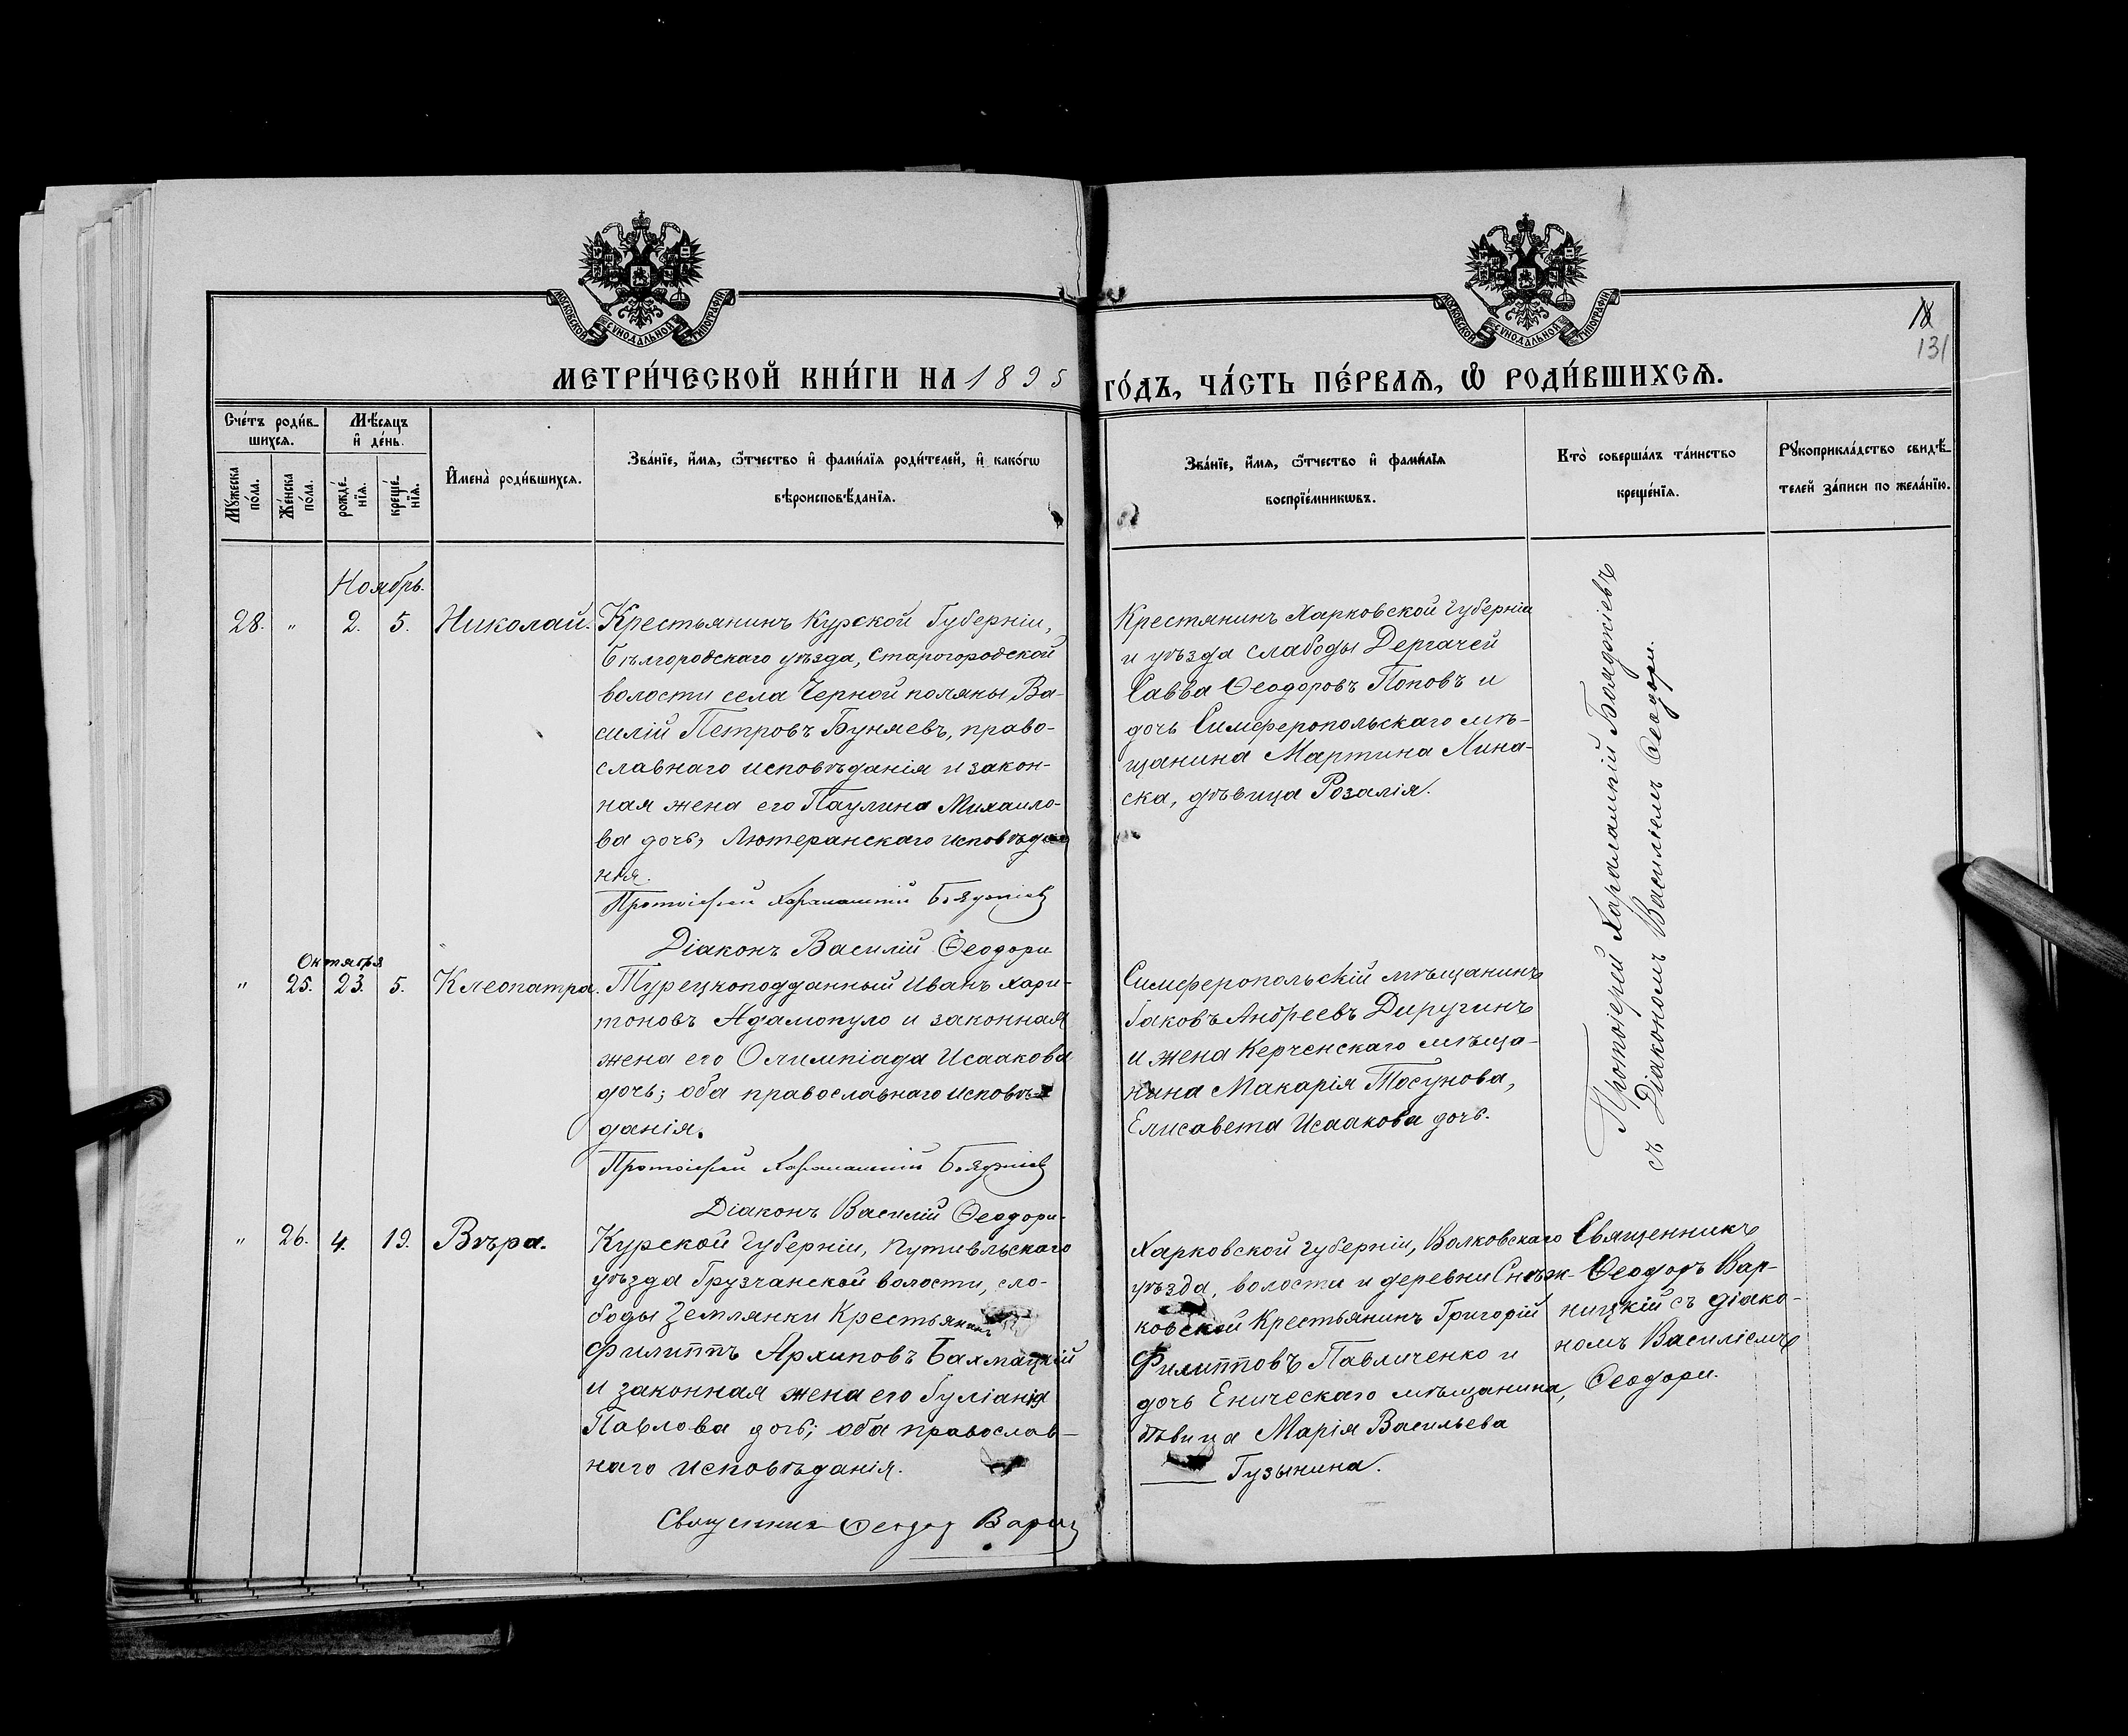 МОСКОВСКОЙ СѴНОДАЛЬНОЙ ТИПОГРАФІИ
МОСКОВСКОЙ СѴНОДАЛЬНОЙ ТИПОГРАФІИ
131
МЕТРИ́ЧЕСКОЙ КНИ́ГИ НА 1895 ГО́ДЪ, ЧА́СТЬ ПЕ́РВАѦ, Ѡ҆ РОДИ́ВШИХСѦ.
Сче́тъ роди́в-
шихсѧ.
Мѣ́сѧцъ
и҆ де́нь.
Мꙋ́жеска
по́ла.
Же́нска
по́ла.
рожде́-
нїѧ.
креще́-
нїѧ.
И҆мена̀ роди́вшихсѧ.
Зва́нїе, и҆́мѧ, ѻ҆́тчество и҆ фами́лїѧ роди́телей, и҆ како́гѡ
вѣроисповѣ́данїѧ.
Зва́нїе, и҆́мѧ, ѻ҆́тчество и҆ фами́лїѧ
воспрїе́мникѡвъ.
Кто̀ соверша́лъ та́инство
креще́нїѧ.
Рꙋкоприкла́дство свидѣ́-
телей за́писи по жела́нїю.
Ноябрь.
28. „ 2. 5. Николай.
Крестьянинъ Курской Губерніи,
Бѣлгородскаго уѣзда, Старогородской
волости села Черной поляны Ва-
силій Петровъ Буняевъ, право-
славнаго исповѣданія и закон-
ная жена его Паулина Михаило-
ва дочь, Лютеранскаго исповѣда-
нія.
Протоіерей Харалампій Бояджіевъ
Діаконъ Василій Ѳеодори
Крестянинъ Харковской Губерніи
и уѣзда слабоды Дергачей
Савва Ѳеодоровъ Поповъ и
дочь Симферопольскаго мѣ-
щанина Мартина Лина-
ска, дѣвица Розалія.
Протоіерей Харалампій Бояджіевъ
съ Діакономъ Василіемъ Ѳеодори.
Октября
„ 25. 23. 5. Клеопатра.
Турецкоподданный Иванъ Хари-
тоновъ Адамопуло и законная
жена его Олимпіада Исаакова
дочь; оба православнаго исповѣ-
данія.
Протоіерей Харалампій Бояджіевъ
Діаконъ Василій Ѳеодори.
Симферопольскій мѣщанинъ
Іаковъ Андреевъ Диругинъ
и жена Керченскаго мѣща-
нина Макарія Тосунова,
Елисавета Исаакова дочь.
„ 26. 4. 19. Вѣра.
Курской Губерніи, Путивльскаго
уѣзда Грузчанской волости, сло-
боды Землянки Крестьянинъ
Филиппъ Архиповъ Бахмацкій
и законная жена его Іуліанія
Павлова дочь; оба православ-
наго исповѣданія.
Священникъ Ѳеодоръ
Харковской губерніи, Валковскаго
уѣзда, волости и деревни Снѣж-
ковской Крестьянинъ Григорій
Филипповъ Павличенко и
дочь Еническаго мѣщанина,
дѣвица Марія Васильева
Гузынина.
Священникъ
Ѳеодоръ Вар-
ницкій съ діако-
номъ Василіемъ
Ѳеодори.